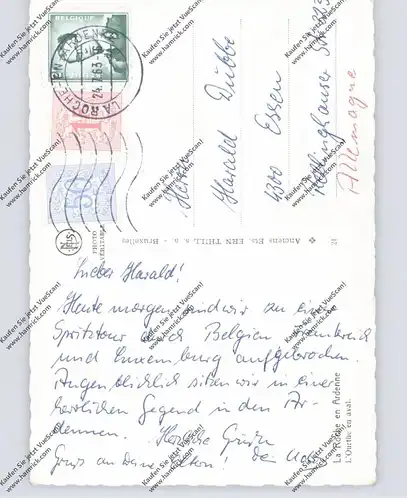 BELGIQUE
LA ROCHE-EN-ARDENNE
24.7.63
1F
50
Herrn
Harald Dubbe
4300 Essen
Allemagne
PHOTO VÉRITABLE
Anciens Ets. ERN THILL, s. a. - Bruxelles
Lieber Harald!
Heute morgen sind wir zu einer
Spritztour nach Belgien, Frankreich
und Luxemburg aufgebrochen.
Augenblicklich sitzen wir in einer
herrlichen Gegend in den Ar-
dennen. Herzliche Grüße
Gruß an Deine Eltern! Dein
La Roche en Ardenne
L'Ourthe en aval.
Kaufen Sie jetzt VueScan!
www.hamrick.com